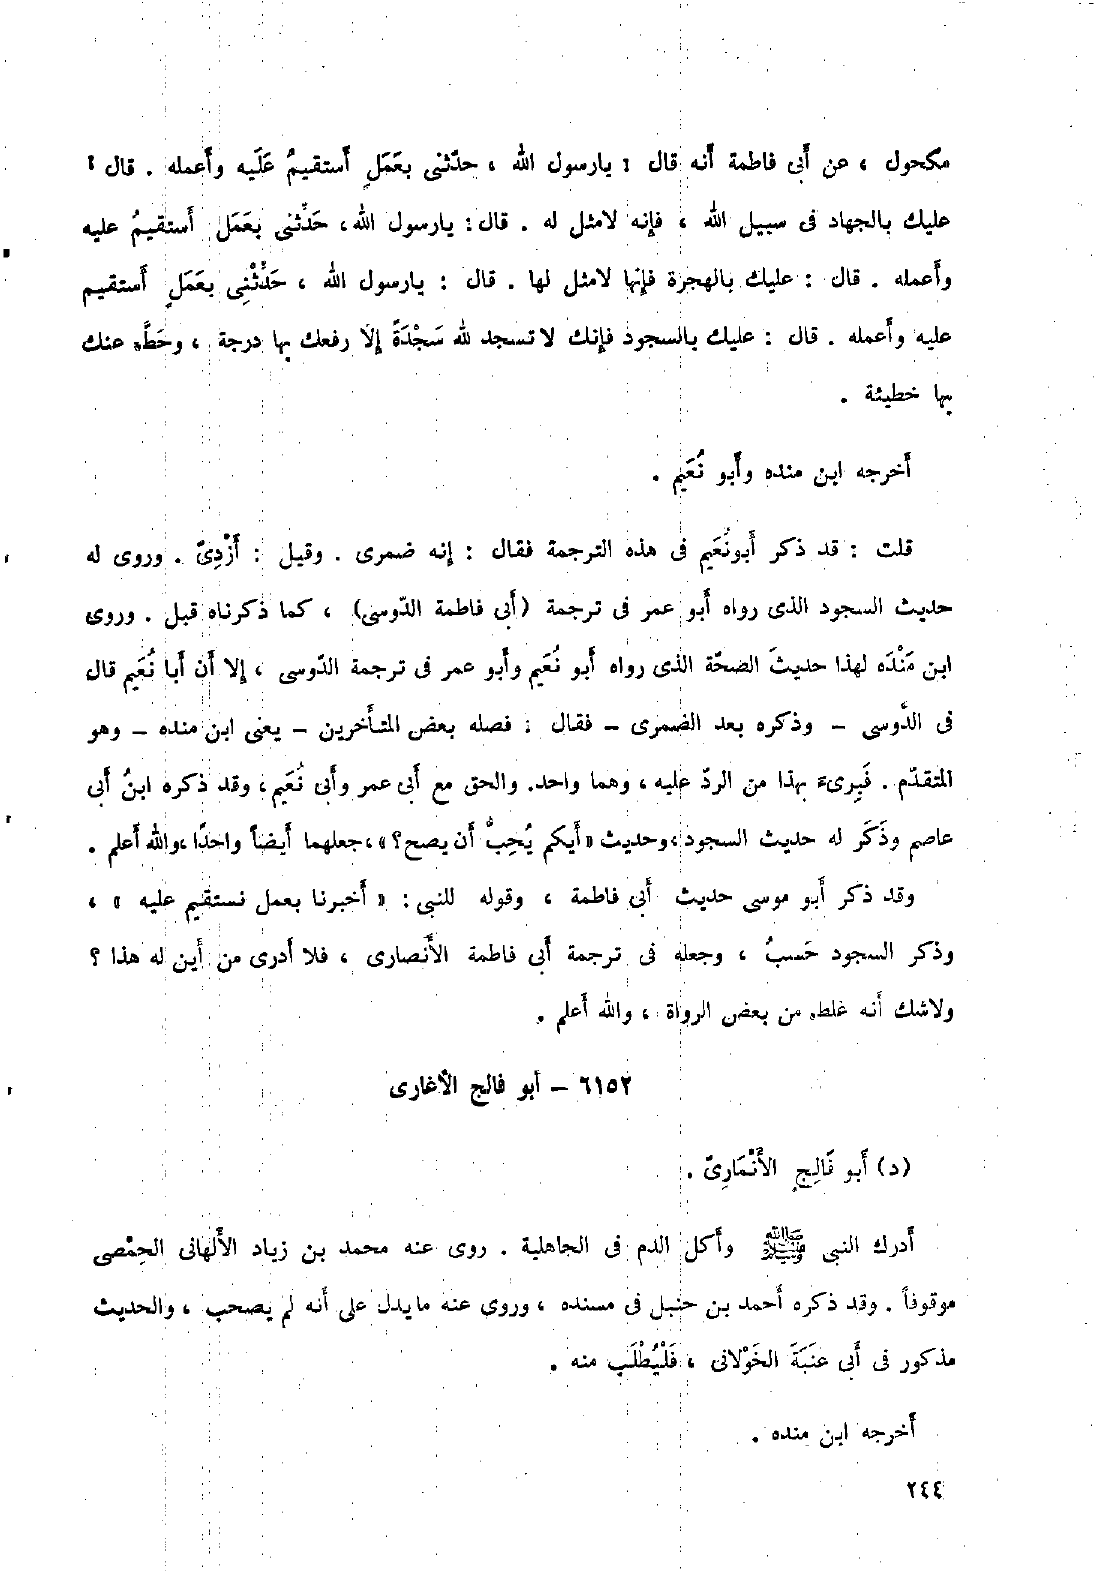 مكحول ، عن أبى فاطمة أنه قال : يارسول الله ، حدّثنى بعَمَلٍ أستقيمُ عَلَيه وأعمله . قال :
عليك بالجهاد فى سبيل الله ، فإنه لامثل له . قال : يارسول الله ، حَدِّثنى بعَمَل أستقيمُ عليه
وأعمله . قال : عليك بالهجرة فإنها لامثل لها . قال : يارسول الله ، حَدِّثْنِى بعَمَلٍ أستقيم
عليه وأعمله . قال : عليك بالسجود فإنك لا تسجد لله سَجْدَةً إلا رفعك بها درجة ، وحَطَّ عنك
بها خطيئة .
أخرجه ابن منده وأبو نُعَيم .
قلت : قد ذكر أبونُعَيم فى هذه الترجمة فقال : إنه ضمرى . وقيل : أَزْدِىّ . وروى له
حديث السجود الذى رواه أبو عمر فى ترجمة (أبى فاطمة الدّوسى) ، كما ذكرناه قبل . وروى
ابن مَنْدَه لهذا حديثَ الصحّة الذى رواه أبو نُعَيم وأبو عمر فى ترجمة الدّوسى ، إلا أن أبا نُعَيم قال
فى الدَّوسى – وذكره بعد الضمرى – فقال : فصله بعض المتأخرين – يعنى ابن منده – وهو
المتقدّم . فَبِرىء بهذا من الردّ عليه ، وهما واحد. والحق مع أبى عمر وأبى نُعَيم ، وقد ذكره ابنُ أبى
عاصم وذَكَر له حديث السجود ، وحديث «أيكم يُحِبُّ أن يصح؟» ، جعلهما أيضاً واحدًا ، والله أعلم .
وقد ذكر أبو موسى حديث أبى فاطمة ، وقوله للنبى : « أخبرنا بعمل نستقيم عليه » ،
وذكر السجود حَسبُ ، وجعله فى ترجمة أبى فاطمة الأنصارى ، فلا أدرى من أين له هذا ؟
ولاشك أنه غلط من بعض الرواة ، والله أعلم .
٦١٥٢ – أبو فالج الأنمارى
(د) أبو فَالِجٍ الأَنْمَارِىّ .
أدرك النبى ﷺ وأكل الدم فى الجاهلية . روى عنه محمد بن زياد الألهانى الحِمْصى
موقوفاً . وقد ذكره أحمد بن حنبل فى مسنده ، وروى عنه مايدل على أنه لم يصحب ، والحديث
مذكور فى أبى عنَبَةَ الخَوْلانى ، فَلْيُطْلَب منه .
أخرجه ابن منده .
٢٤٤